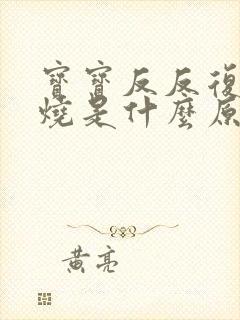 寶寶反反復
燒是什麼原
黃亮